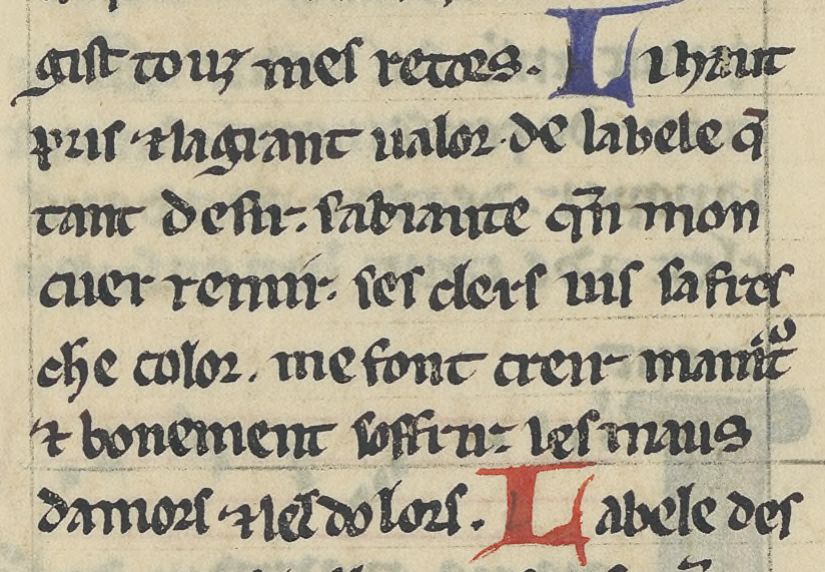 gist touz mes retors. Li haut
pris ⁊ lagrant ualor de labele q̄
tant desir. sabiaute q̄n mon
cuer remir. ses clers uis sa fres
che color. me font
⁊ bonement soffrir. les maus
damors ⁊ les dolors. La bele des